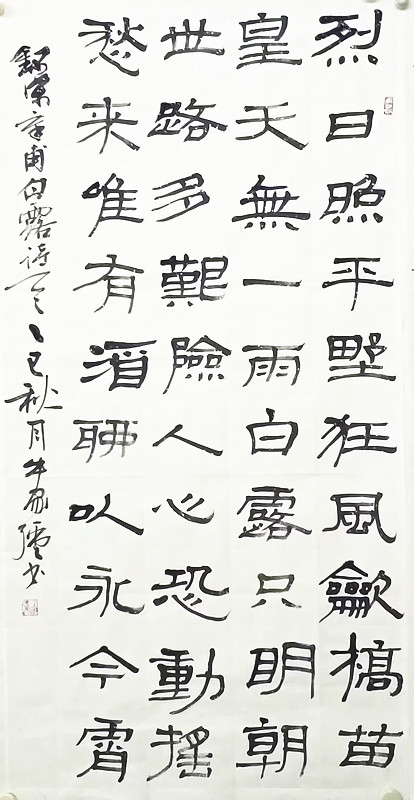 烈日照平野狂風龡槁苗
皇天無一雨白露只明朝
世路多艱險人心恐動搖
愁來唯有酒聊以永今宵
錄宋章甫白露詩 乙巳秋月牛 书